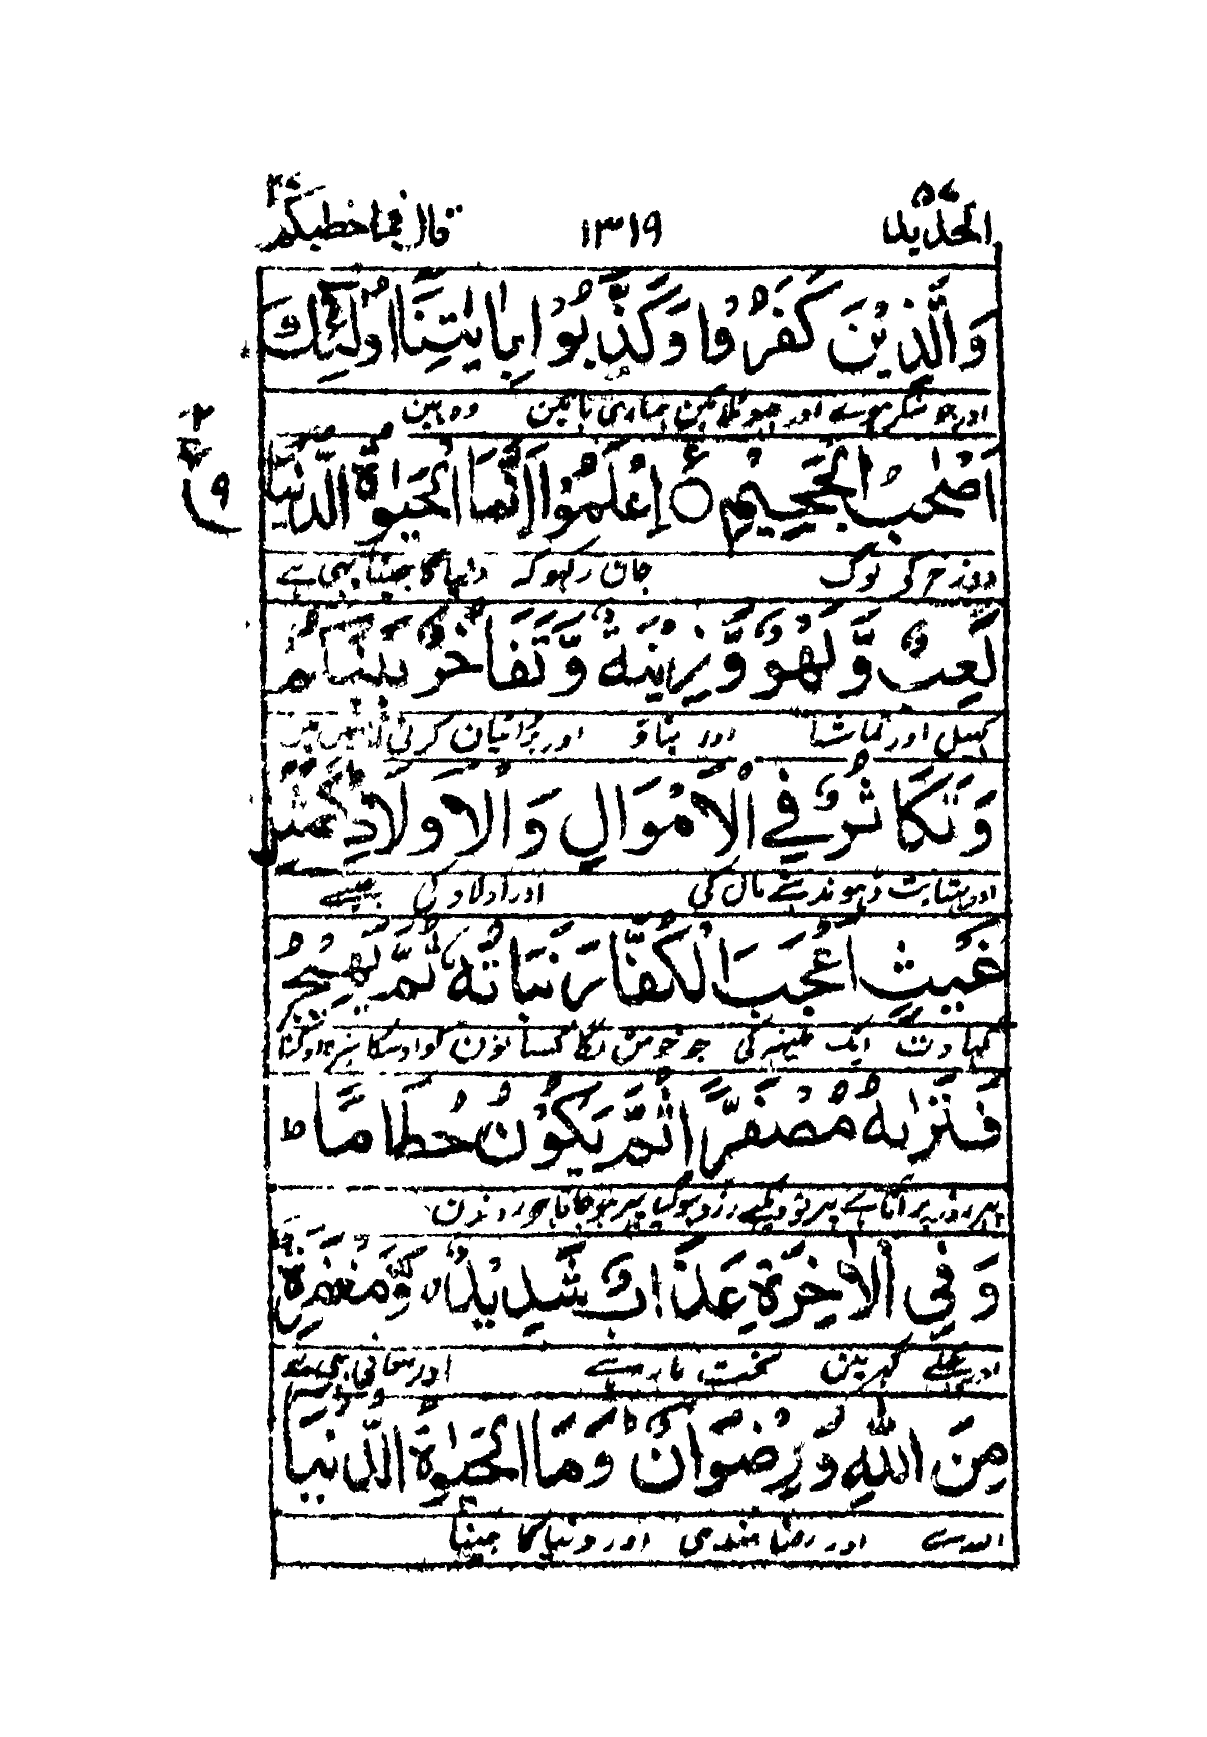 الحديد ٥٧
١٣١٩
قال فما خطبكم ٢٧
وَالَّذِيْنَ كَفَرُوْا وَكَذَّبُوْا بِاٰيٰتِنَآ اُولٰٓئِكَ
اور جو منکر ہوے اور جھوٹلائین ہماری باتین وہ ہین
اَصْحٰبُ الْجَحِيْمِ ۝ ع اِعْلَمُوْٓا اَنَّمَا الْحَيٰوةُ الدُّنْيَا
٢
ع
٩
دوزخ کی لوگ جان رکھو کہ دنیا کا جینا یہی ہے
لَعِبٌ وَّلَهْوٌ وَّزِيْنَةٌ وَّتَفَاخُرٌۢ بَيْنَكُمْ
کھیل اور تماشا اور بناؤ اور بڑائیان کرنی آپس مین
وَتَكَاثُرٌ فِي الْاَمْوَالِ وَالْاَوْلَادِ كَمَثَلِ
اور بہتایت ڈھونڈہنے مال کی اور اولاد کی جیسے
غَيْثٍ اَعْجَبَ الْكُفَّارَ نَبَاتُهٗ ثُمَّ يَهِيْجُ
کہاوت ایک مینہہ کی جو خوش لگا کسانون کو اوسکا سبزہ اوگنا
فَتَرٰىهُ مُصْفَرًّا ثُمَّ يَكُوْنُ حُطَامًا ط
پھر زور پر آتا ہے پھر تو دیکھے زرد ہوگیا پھر ہو جاتا ہے روندن
وَفِي الْاٰخِرَةِ عَذَابٌ شَدِيْدٌ وَّمَغْفِرَةٌ
اور پچھلے گھر مین سخت مار ہے اور معافی بھی ہے
مِّنَ اللّٰهِ وَرِضْوَانٌ ط وَمَا الْحَيٰوةُ الدُّنْيَآ
اللہ سے اور رضامندی اور دنیا کا جینا